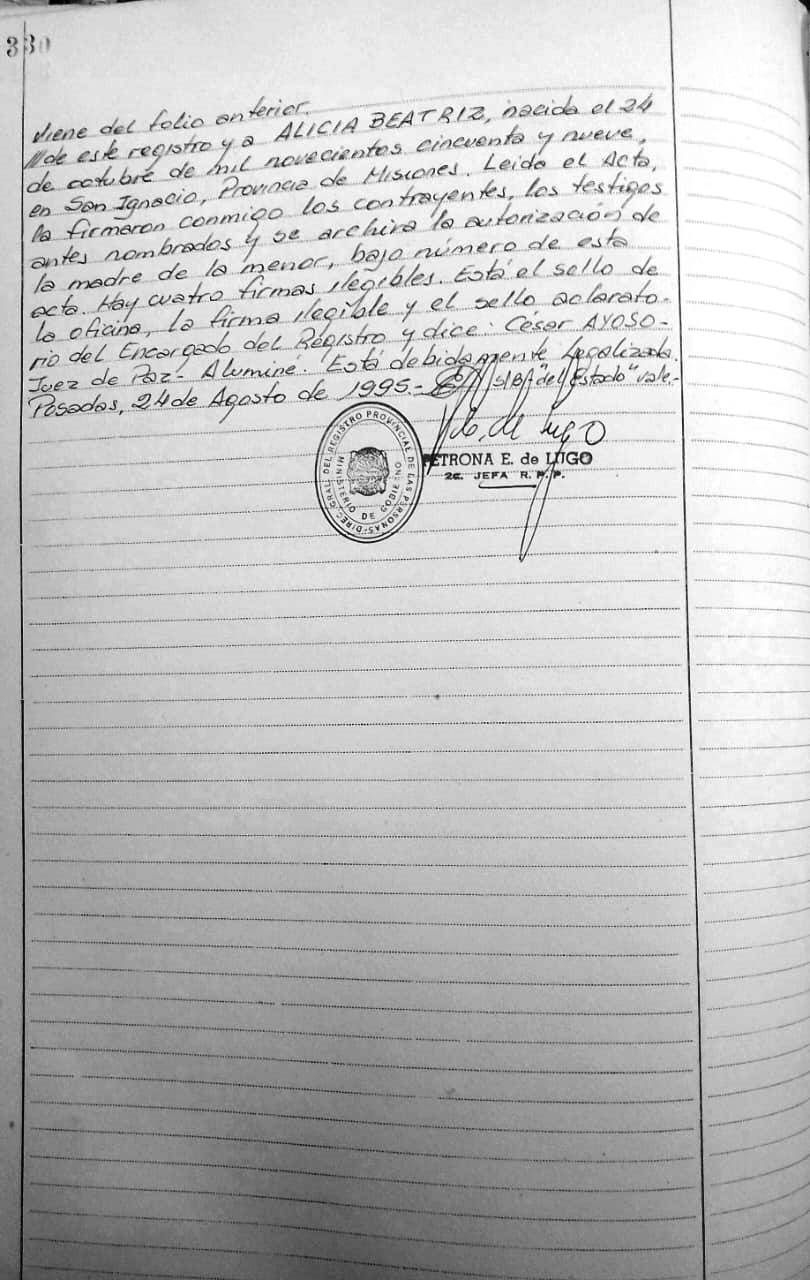 330
Viene del folio anterior.
//de este registro y a ALICIA BEATRIZ, nacida el 24
de octubre de mil novecientos cincuenta y nueve,
en San Ignacio, Provincia de Misiones. Leída el Acta,
la firmaron conmigo los contrayentes, los testigos
antes nombrados y se archiva la autorización de
la madre de la menor, bajo número de esta
acta. Hay cuatro firmas ilegibles. Está el sello de
la oficina, la firma ilegible y el sello aclarato-
rio del Encargado del Registro y dice: César AYOSO-
Juez de Paz- Aluminé. Está debidamente legalizada.
Posadas, 24 de Agosto de 1995.- S/B: "del Estado" vale.-
de Lugo
PETRONA E. de LUGO
2a. JEFA R. P. P.
DIREC. GRAL. DEL REGISTRO PROVINCIAL DE LAS PERSONAS
MINISTERIO DE GOBIERNO